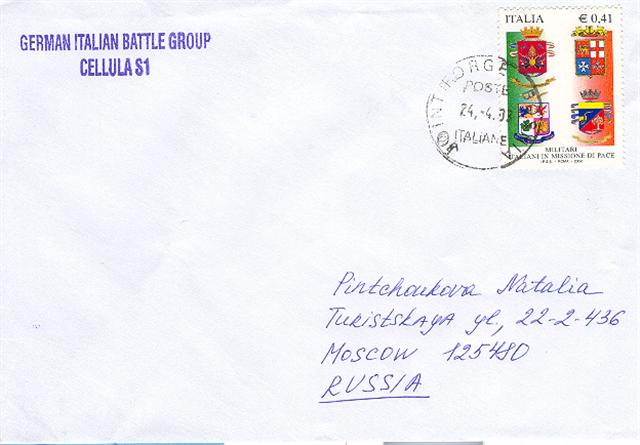 GERMAN ITALIAN BATTLE GROUP
CELLULA S1
ITALIA € 0,41
POSTE
24.-4.
ITALIANE
MILITARI
ITALIANI IN MISSIONE DI PACE
I.P.Z.S. - ROMA - 2002
Pintchoukova Natalia
Turistskaya yl., 22-2-436
Moscow 125480
RUSSIA